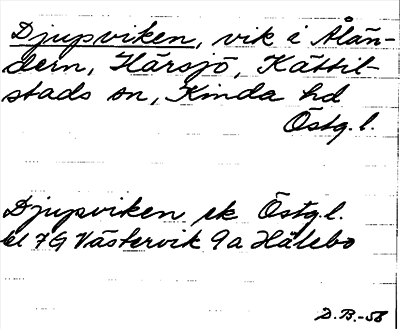 Djupviken, vik i Ålän-
dern, Härsjö, Kättil-
stads sn, Kinda hd
Östg. l.
Djupviken ek Östg. l.
bl 7G Västervik 9a Hälebo
D.B.-58